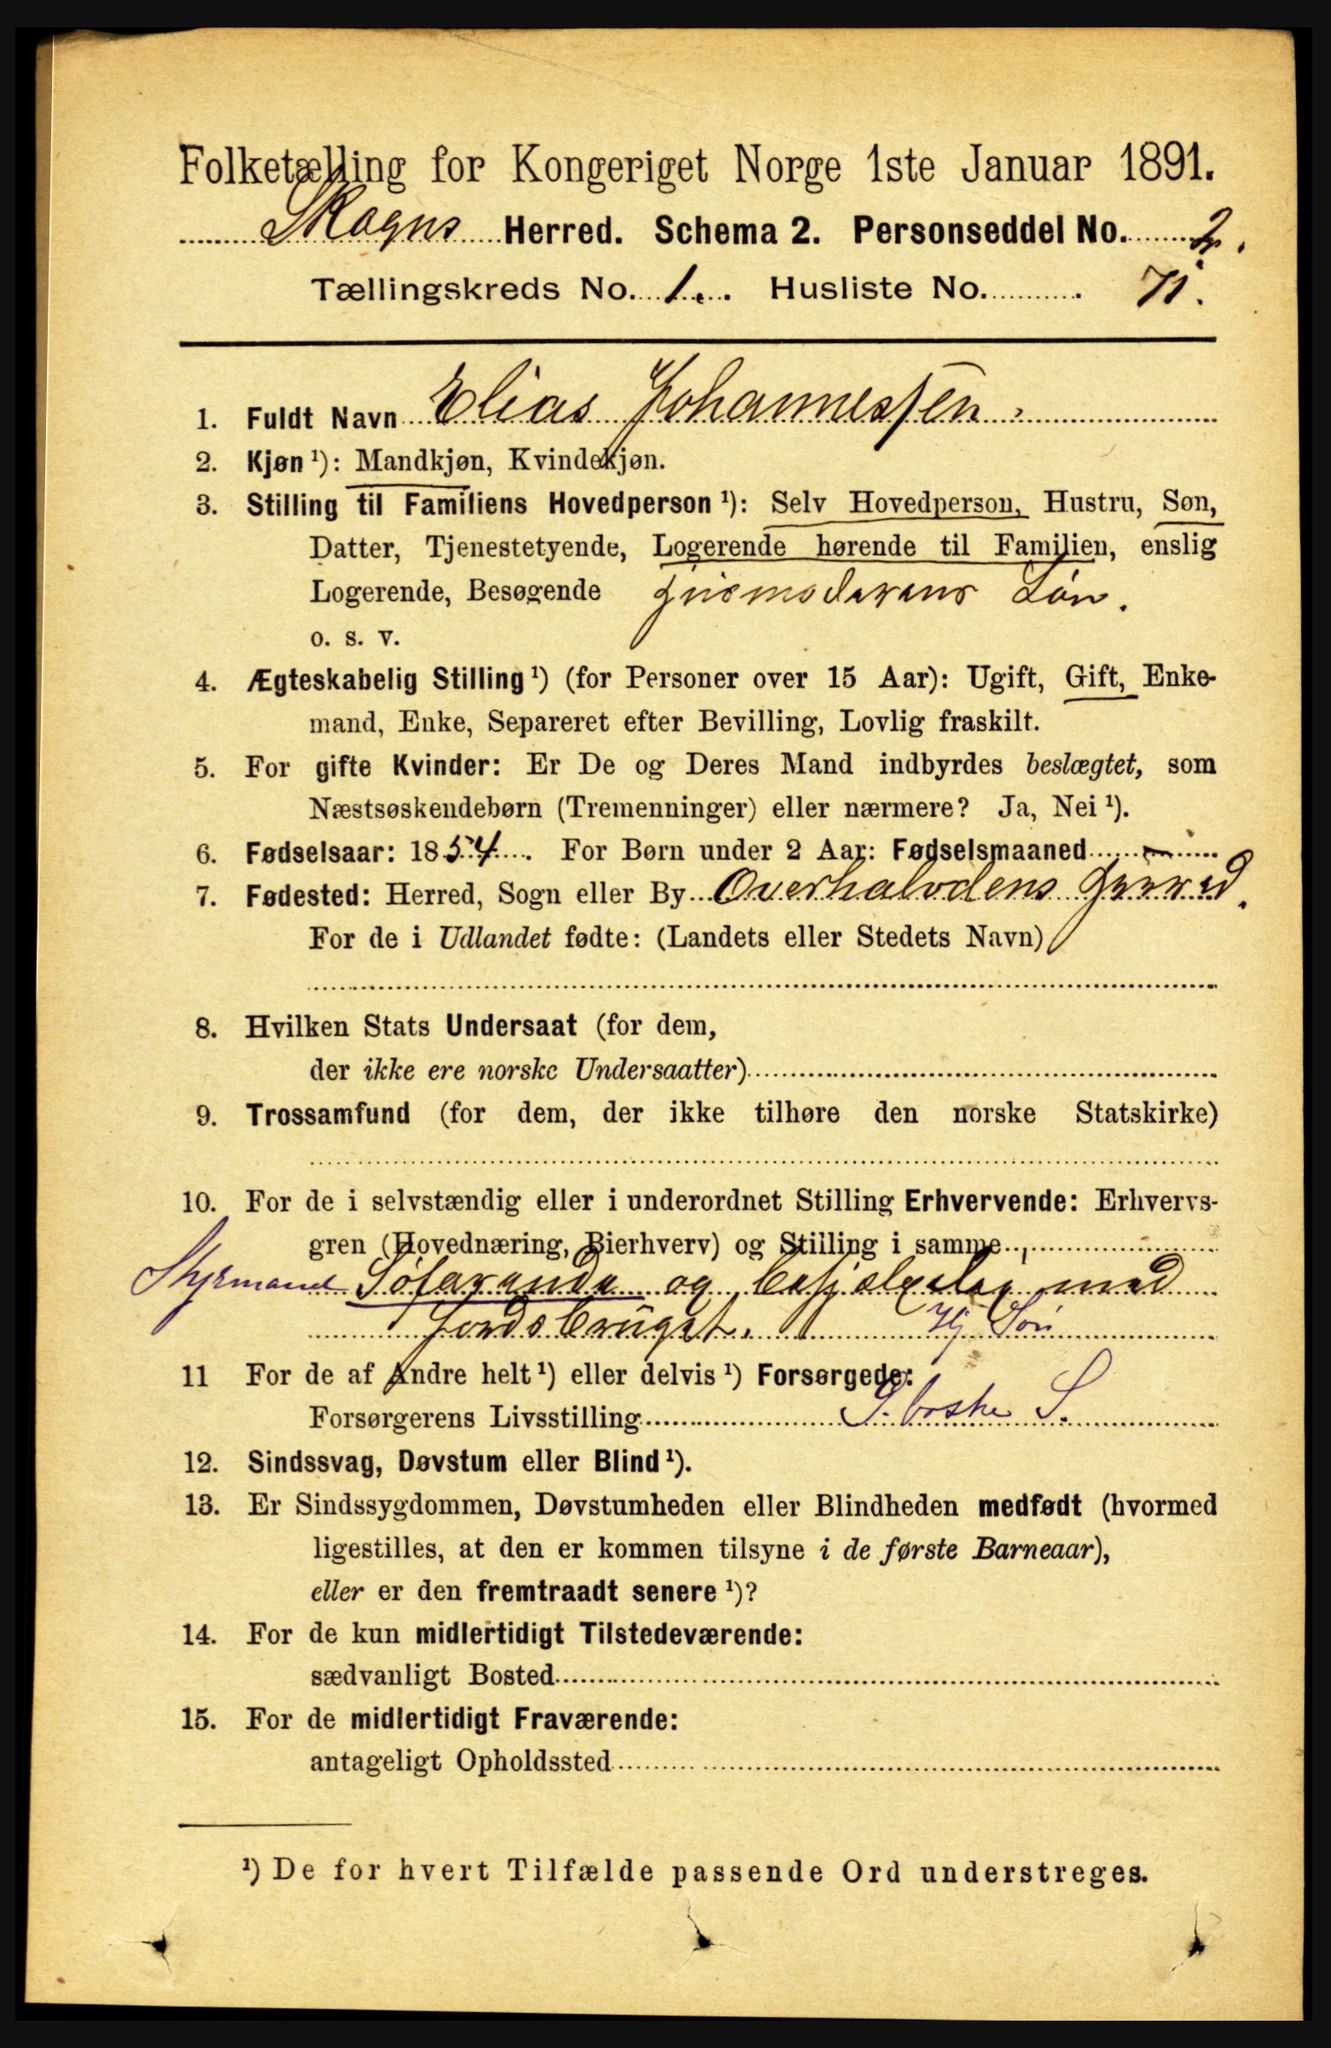 Folketælling for Kongeriget Norge 1ste Januar 1891.
Skogns Herred. Schema 2. Personseddel No. 2.
Tællingskreds No. 1. Husliste No. 71.
1. Fuldt Navn Elias Johannessen.
2. Kjøn ¹): Mandkjøn, Kvindekjøn.
3. Stilling til Familiens Hovedperson ¹): Selv Hovedperson, Hustru, Søn,
Datter, Tjenestetyende, Logerende hørende til Familien, enslig
Logerende, Besøgende Husmoderens Søn.
o. s. v.
4. Ægteskabelig Stilling ¹) (for Personer over 15 Aar): Ugift, Gift, Enke-
mand, Enke, Separeret efter Bevilling, Lovlig fraskilt.
5. For gifte Kvinder: Er De og Deres Mand indbyrdes beslægtet, som
Næstsøskendebørn (Tremenninger) eller nærmere? Ja, Nei ¹).
6. Fødselsaar: 1854. For Børn under 2 Aar: Fødselsmaaned —
7. Fødested: Herred, Sogn eller By Overhalvdens Herred.
For de i Udlandet fødte: (Landets eller Stedets Navn)
8. Hvilken Stats Undersaat (for dem,
der ikke ere norske Undersaatter)
9. Trossamfund (for dem, der ikke tilhøre den norske Statskirke)
10. For de i selvstændig eller i underordnet Stilling Erhvervende: Erhvervs-
gren (Hovednæring, Bierhverv) og Stilling i samme
Styrmand Søfarende og med
Jordsbruget. Hj Søn
11 For de af Andre helt ¹) eller delvis ¹) Forsørgede:
Forsørgerens Livsstilling S.
12. Sindssvag, Døvstum eller Blind ¹).
13. Er Sindssygdommen, Døvstumheden eller Blindheden medfødt (hvormed
ligestilles, at den er kommen tilsyne i de første Barneaar),
eller er den fremtraadt senere ¹)?
14. For de kun midlertidigt Tilstedeværende:
sædvanligt Bosted
15. For de midlertidigt Fraværende:
antageligt Opholdssted
¹) De for hvert Tilfælde passende Ord understreges.